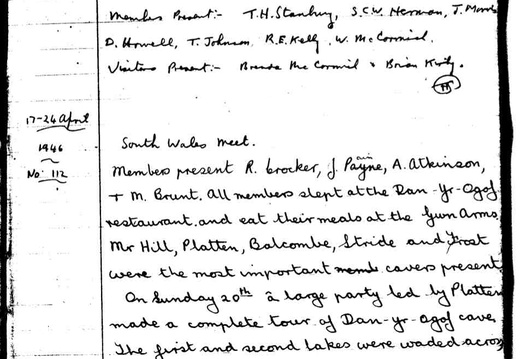 Members Present:- T.H. Stanbury, S.C.W. Herman, T. Morris
D. Howell, T. Johnson, R.E. Kelly, W. McCormick.
Visitors Present:- Brenda McCormick & Brian
17-24 April
1946
No: 112
South Wales Meet.
Members present R. Crocker, J. Payne, A. Atkinson,
+ M. Brunt. All members slept at the Dan-Yr-Ogof
restaurant, and eat their meals at the Gwn Arms.
Mr Hill, Platten, Balcombe, Stride and Frost
were the most important cavers present
On Sunday 20th a large party led by Platten
made a complete tour of Dan-yr-ogof cave.
The first and second lakes were waded across